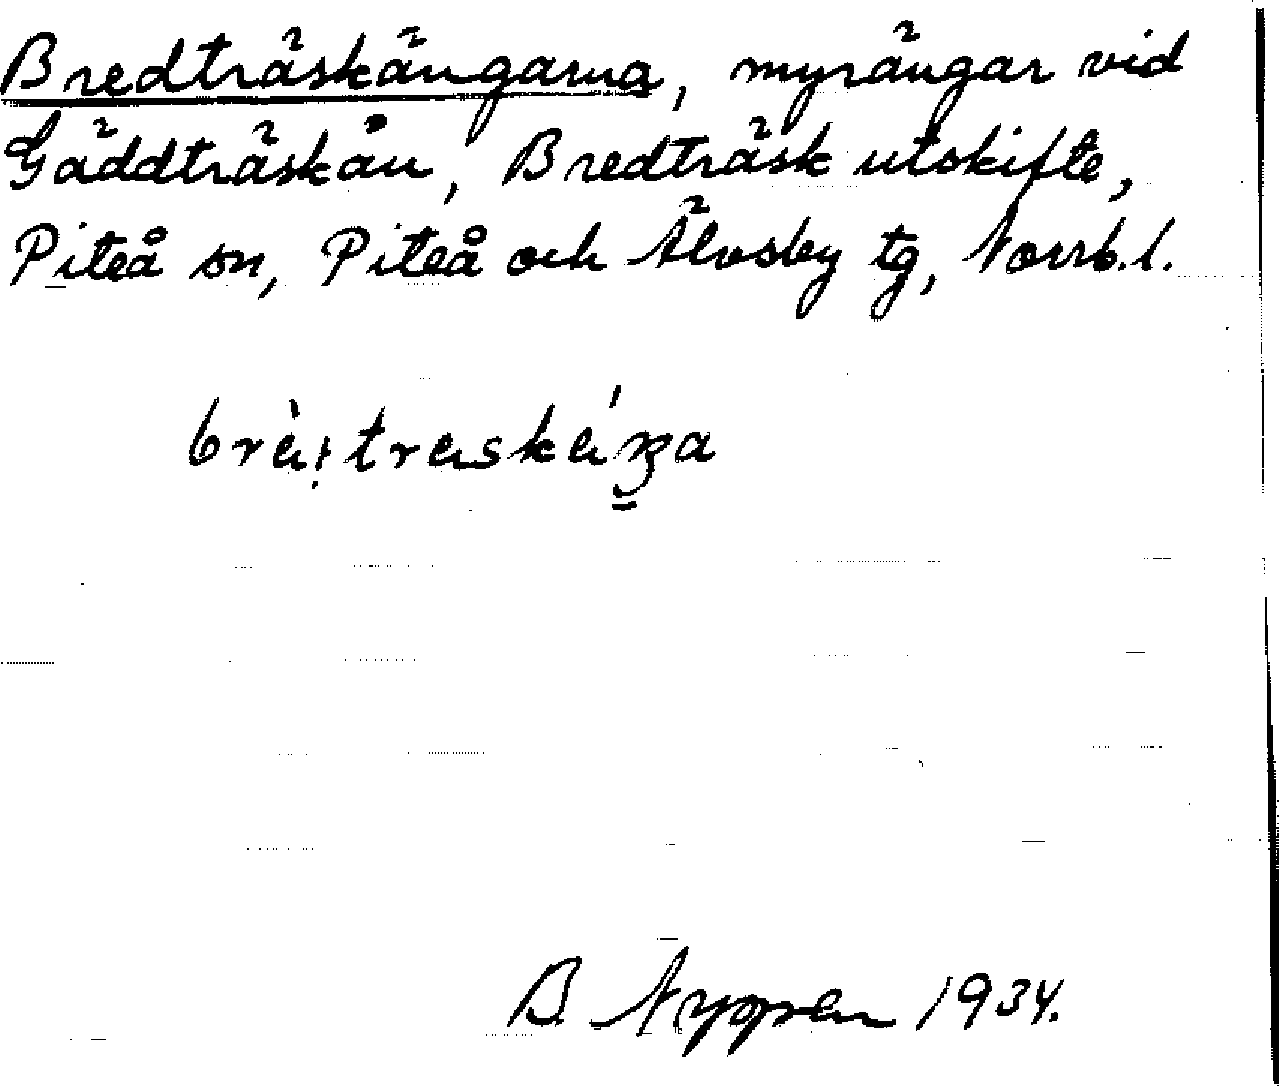 Bredträskängarna, myrängar vid
Gäddträskån, Bredträsk utskifte,
Piteå sn, Piteå och Älvsby tg, Norrb.l.
B. Nyppen 1934.